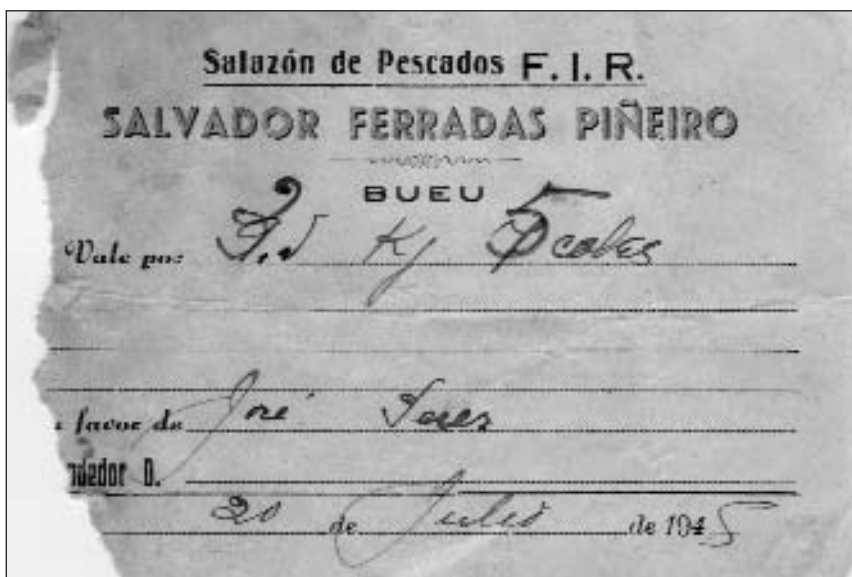 Salazón de Pescados F. I. R.
SALVADOR FERRADAS PIÑEIRO
BUEU
Vale por Kg
favor de José
ndedor D.
20 de Julio de 1945